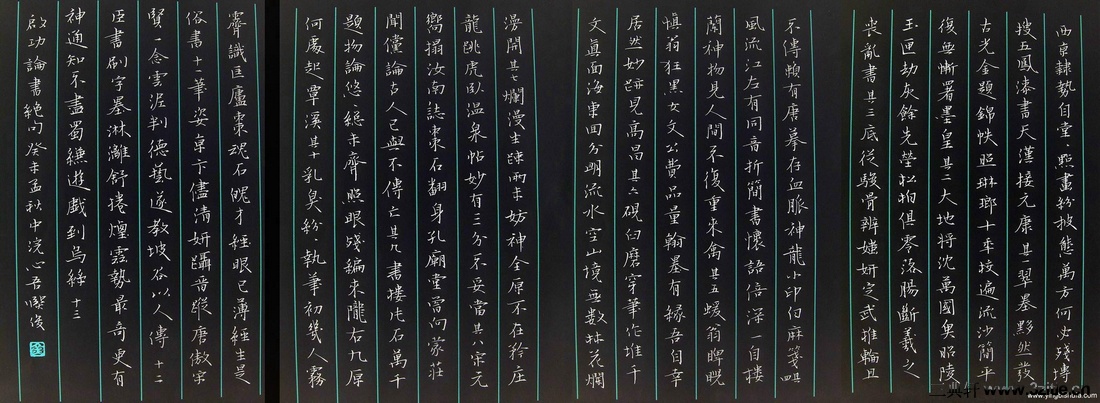 西京隸勢自堂々照畫紛披態萬方何必殘塼
搜五鳳漆書天漢接元康其一翠墨黟然發
古光金題錦帙照琳瑯十年校遍流沙簡平
復無慚署墨皇其二大地將沈萬國魚昭陵
玉匣劫灰餘先塋松柏俱零落腸斷羲之
喪亂書其三底從駿骨辨媸妍定武椎輪且
不傳賴有唐摹存血脈神龍小印白麻箋其四
風流江左有同音折簡書懷語倍深一自樓
蘭神物見人間不復重來禽其五媛翁睥睨
慎翁狂黑女文公費品量翰墨有緣吾自幸
居然妙跡見高昌其六硯臼磨穿筆作堆千
文真面海東回分明流水空山境無數林花爛
漫開其七爛漫生疎兩未妨神全原不在矜莊
龍跳虎臥溫泉帖妙有三分不妥當其八宋元
嚮搨汝南誌棗石翻身孔廟堂曾向蒙莊
聞儻論古人已與不傳亡其九書樓片石萬千
題物論悠々總未齊照眼殘編來隴右九原
何處起覃溪其十乳臭紛々執筆初幾人霧
霽識匡廬棗魂石魄才經眼已薄經生是
俗書十一筆姿京卞儘清妍躡晉蹤唐傲宋
賢一念雲泥判德藝遂教坡谷以人傳十二
臣書刷字墨淋漓舒捲煙雲勢最奇更有
神通知不盡蜀縑遊戲到烏絲十三
啟功論書絕句癸未孟秋中浣心吾俊
www.yingbishufa.com